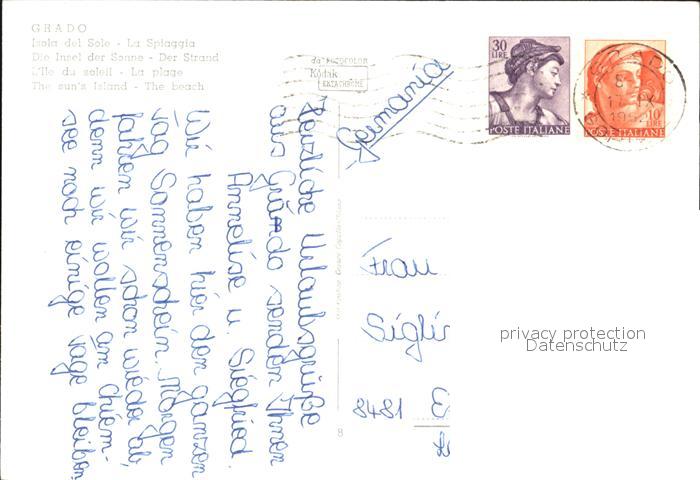 GRADO
Isola del Sole - La Spiaggia
Die Insel der Sonne - Der Strand
L'Ile du soleil - La plage
The sun's Island - The beach
da KODACOLOR
Kodak
EKTACHROME
30
LIRE
POSTE ITALIANE
10
LIRE
POSTE ITALIANE
Germania
Herzliche Urlaubsgrüße
aus Grado senden Ihnen
Annelise u. Siegfried.
Wir haben hier den ganzen
Tag Sonnenschein. Morgen
fahren wir schon wieder ab,
denn wir wollen am Chiem-
see noch einige Tage bleiben.
Frau
Siglin
8481 E
8
privacy protection
Datenschutz